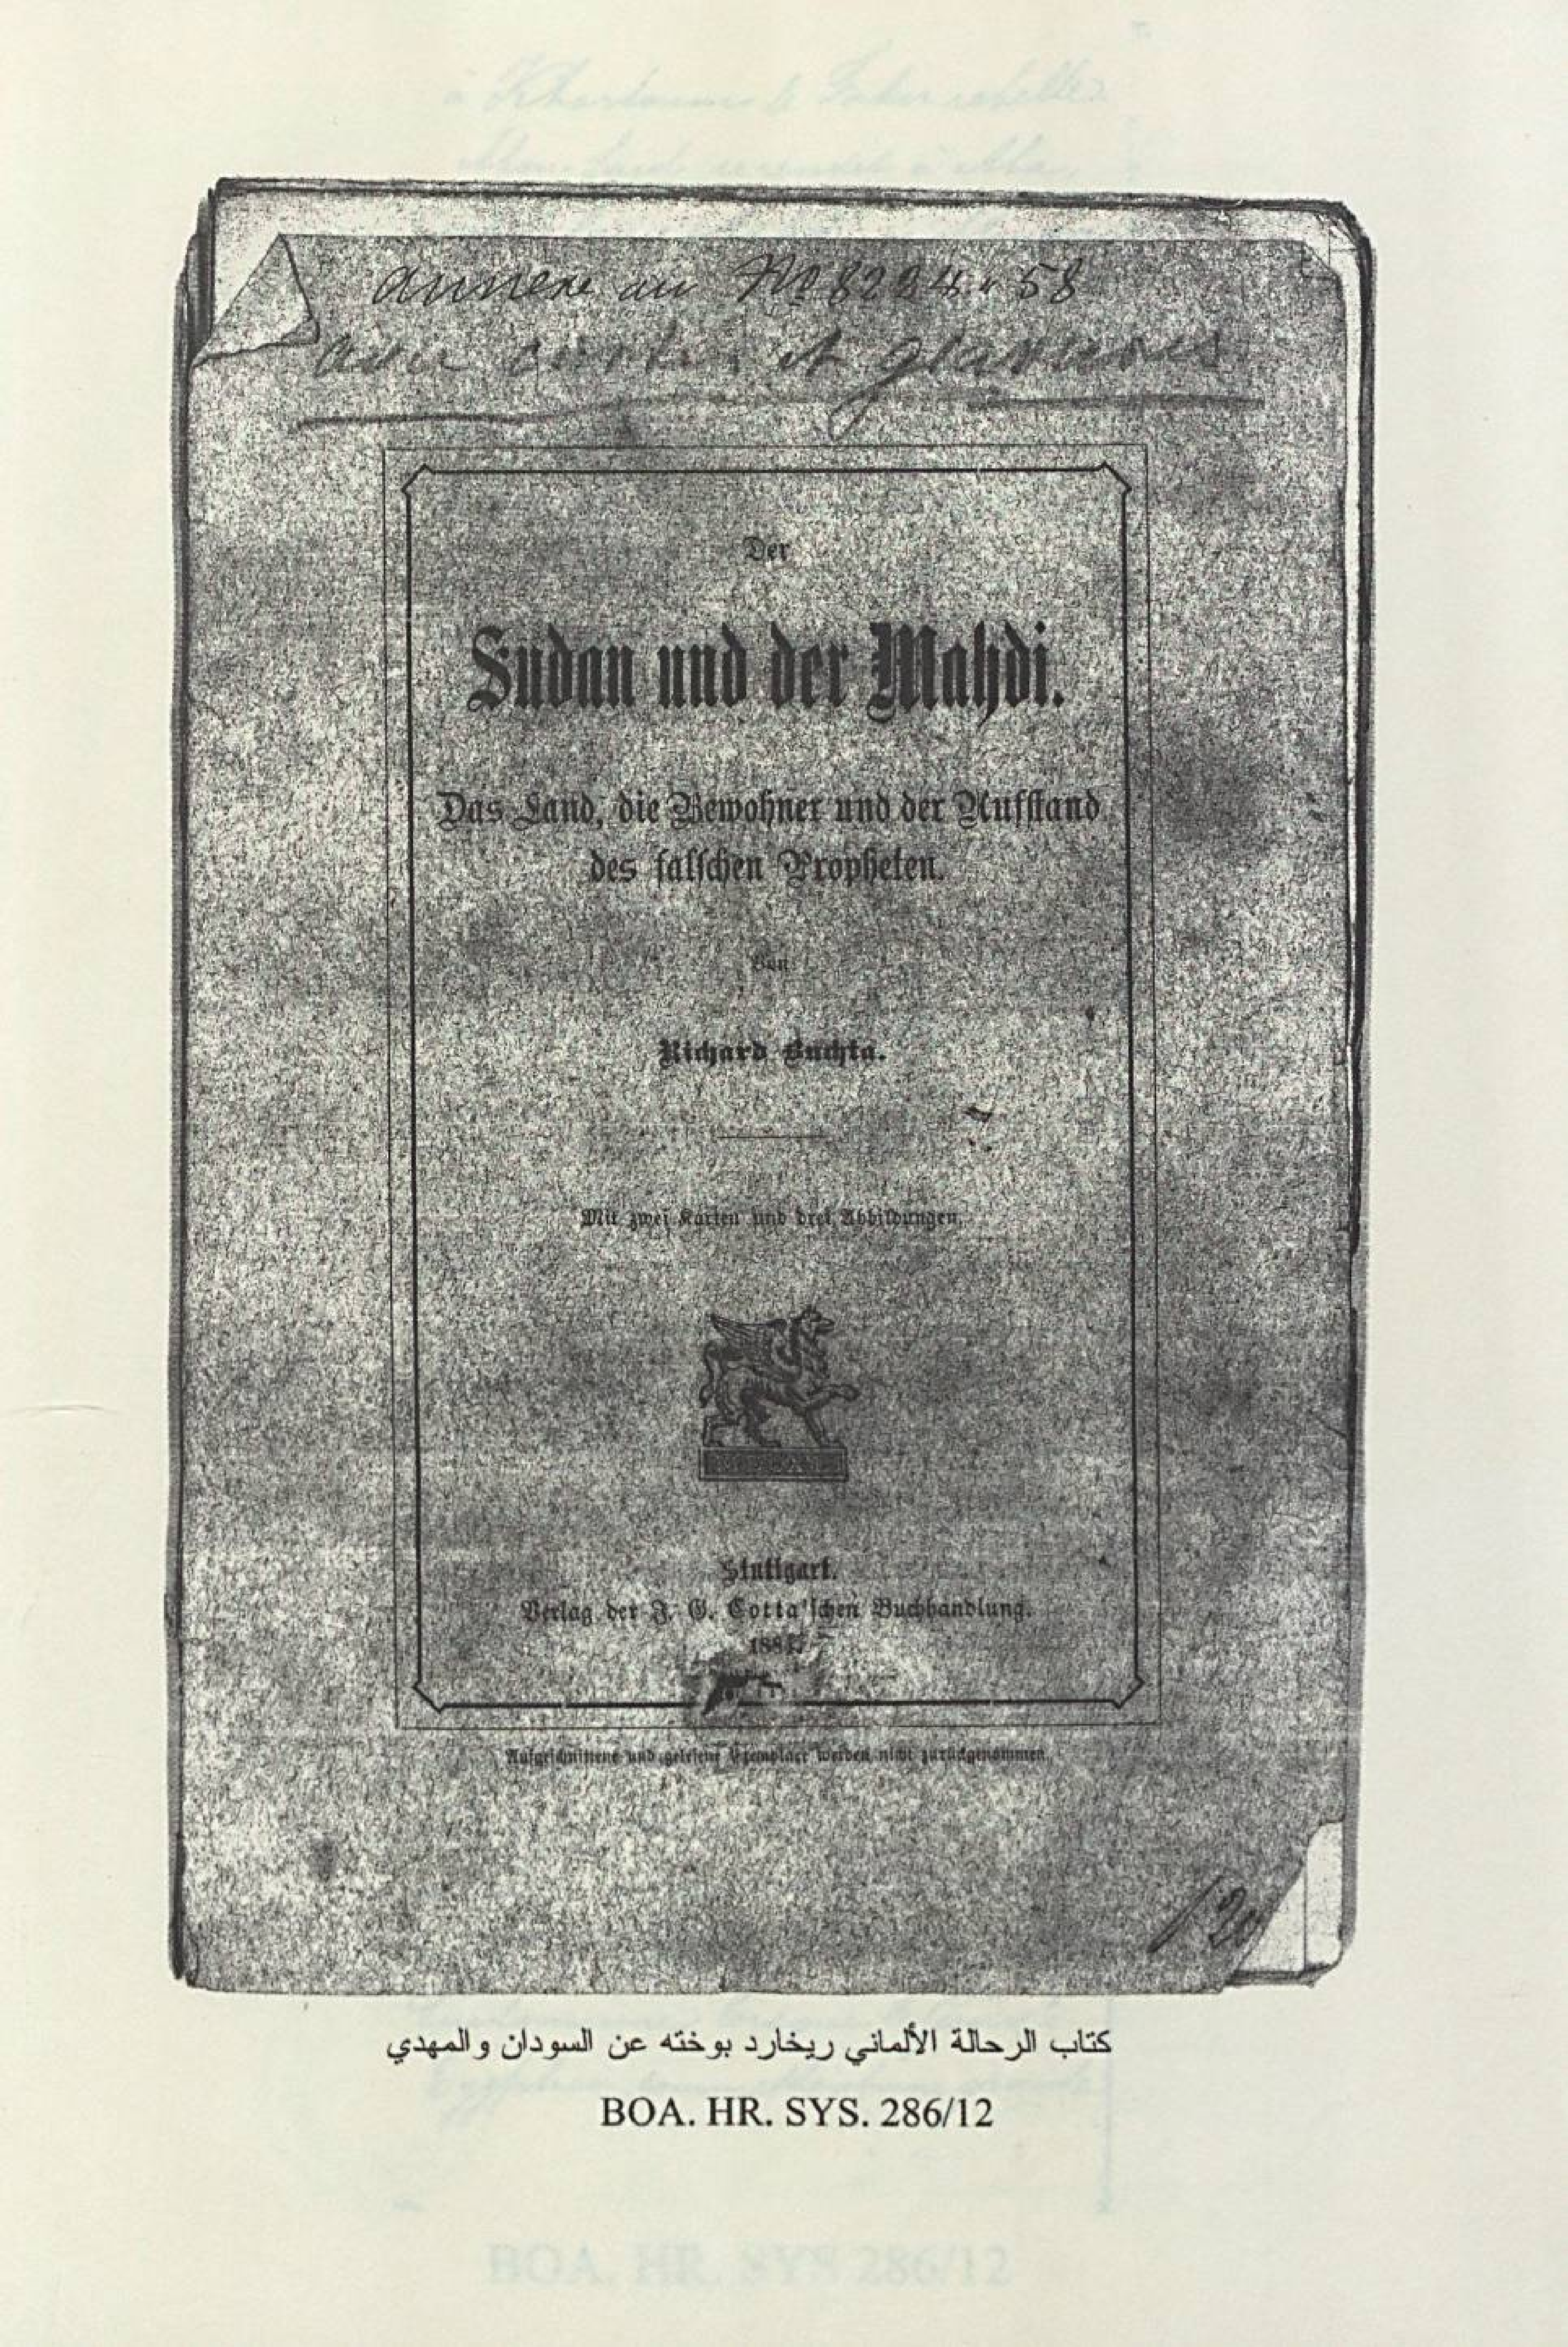 annexe au No 8224 58
avec cartes et gravures
Der
Sudan und der Mahdi.
Das Land, die Bewohner und der Aufstand
des falschen Propheten.
Von
Richard Buchta.
Mit zwei Karten und drei Abbildungen.
Stuttgart.
Verlag der J. G. Cotta'schen Buchhandlung.
Aufgeschnittene und gelesene Exemplare werden nicht zurückgenommen.
كتاب الرحالة الألماني ريخارد بوخته عن السودان والمهدي
BOA. HR. SYS. 286/12